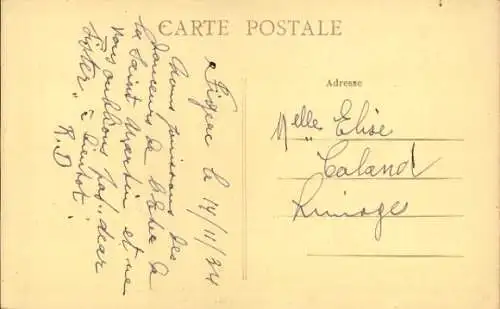 CARTE POSTALE
Figeac le 14/11/34
Nous jouissons des
douceurs de l'été de
la Saint Martin et ne
vous oublions pas "dear
sister" à bientôt.
R. D
Adresse
Melle Elise
Caland
Limoges